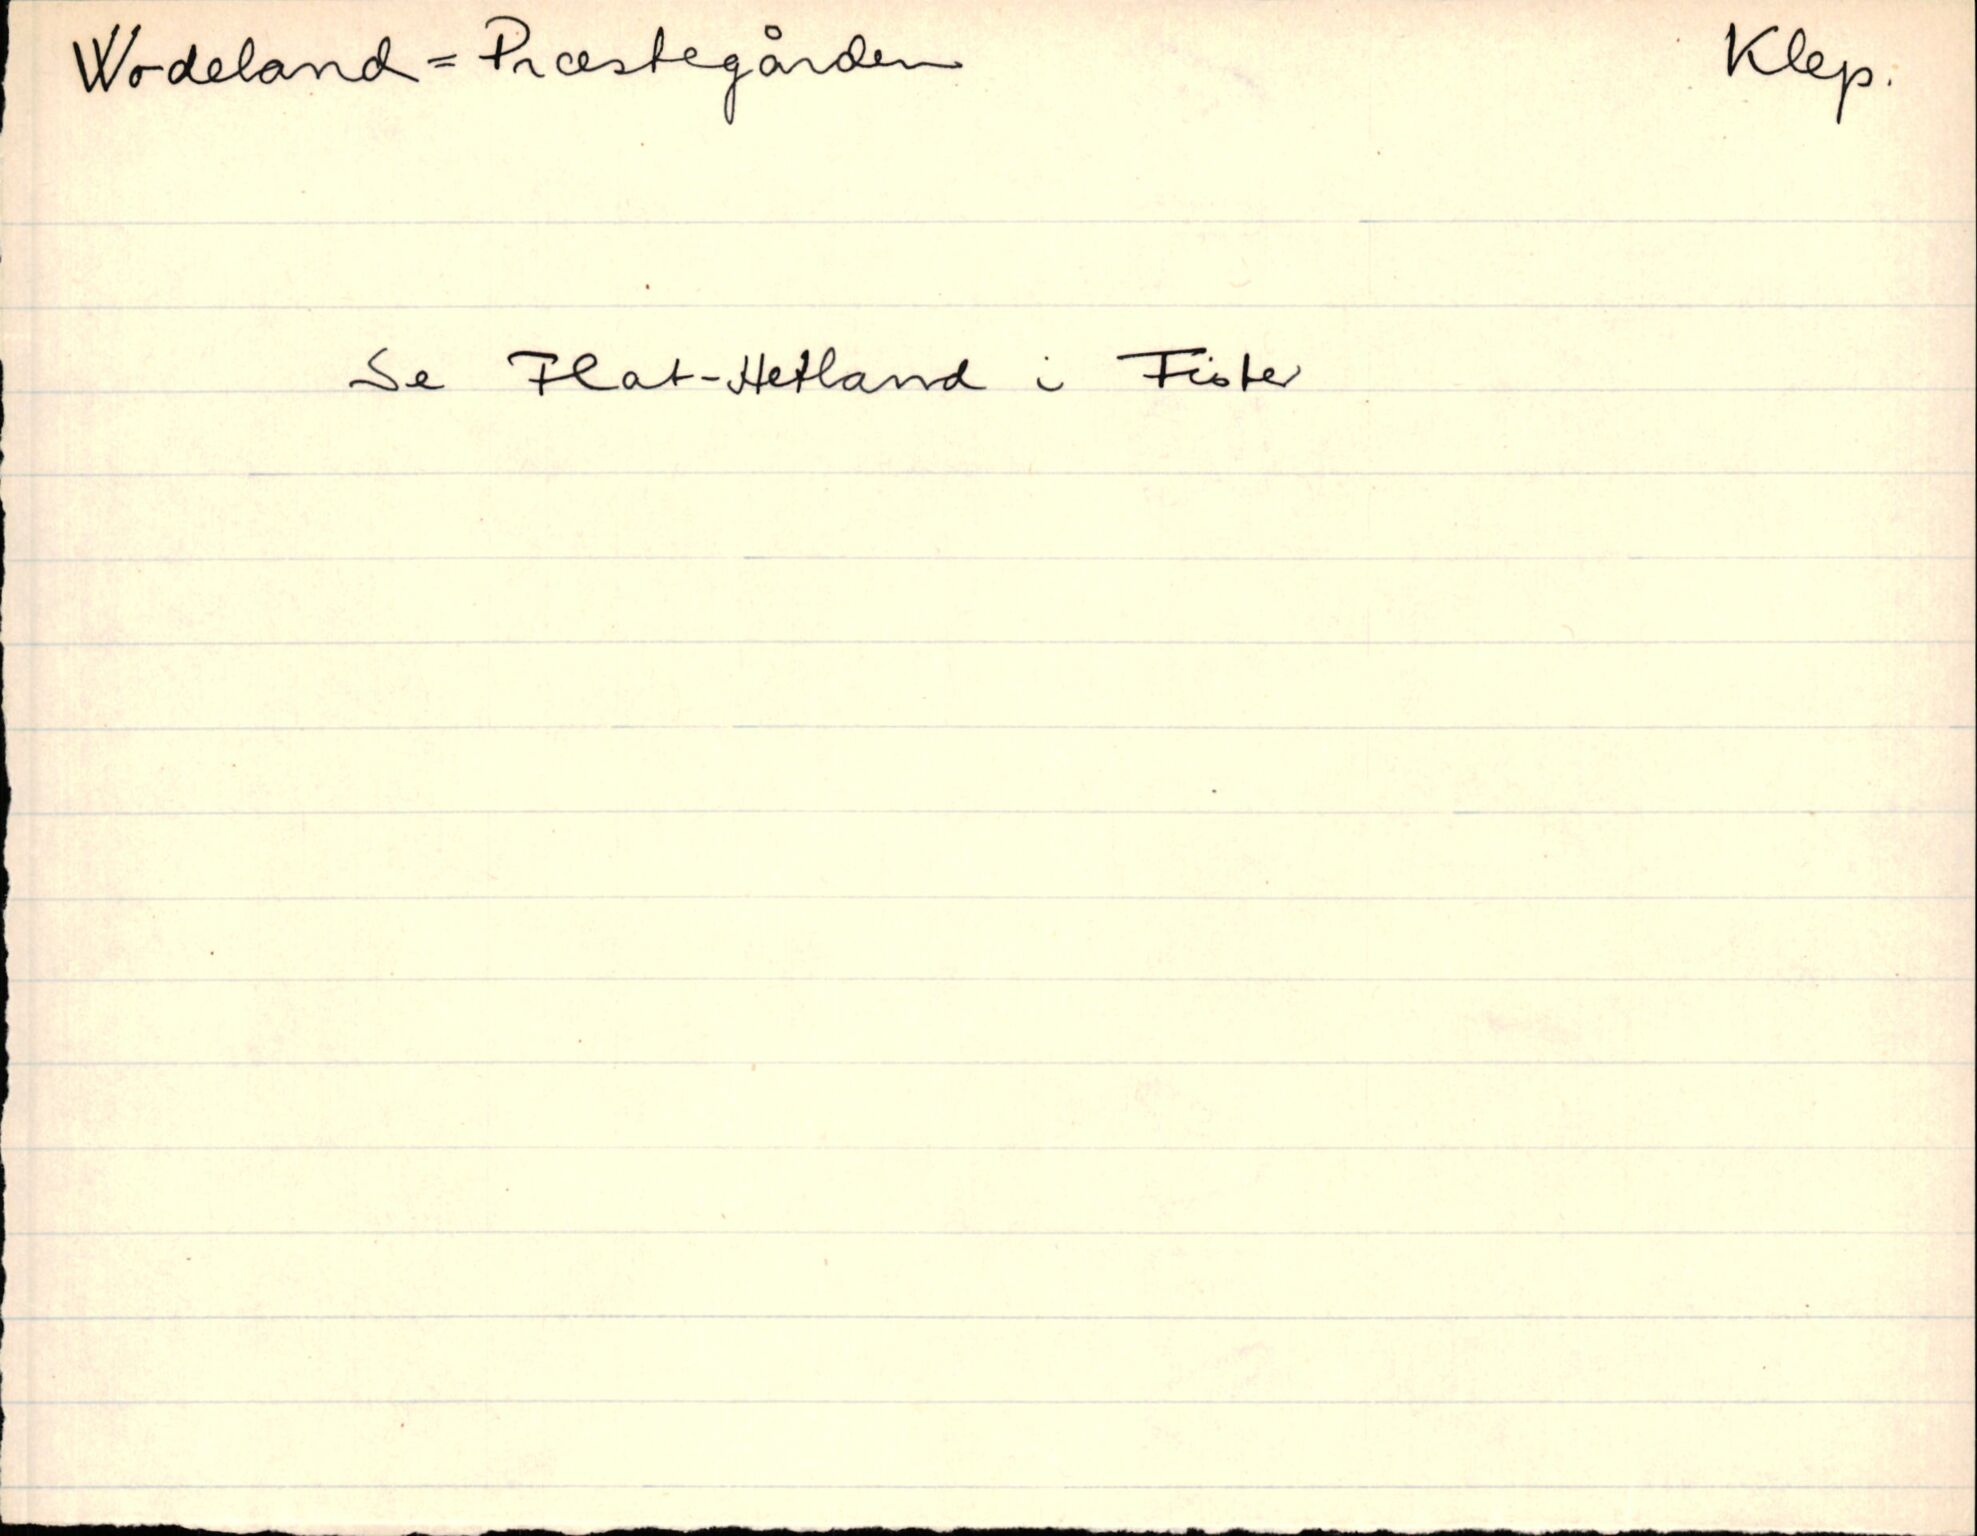 Wodeland = Præstegården Klep.
Se Flat-Hetland i Fister